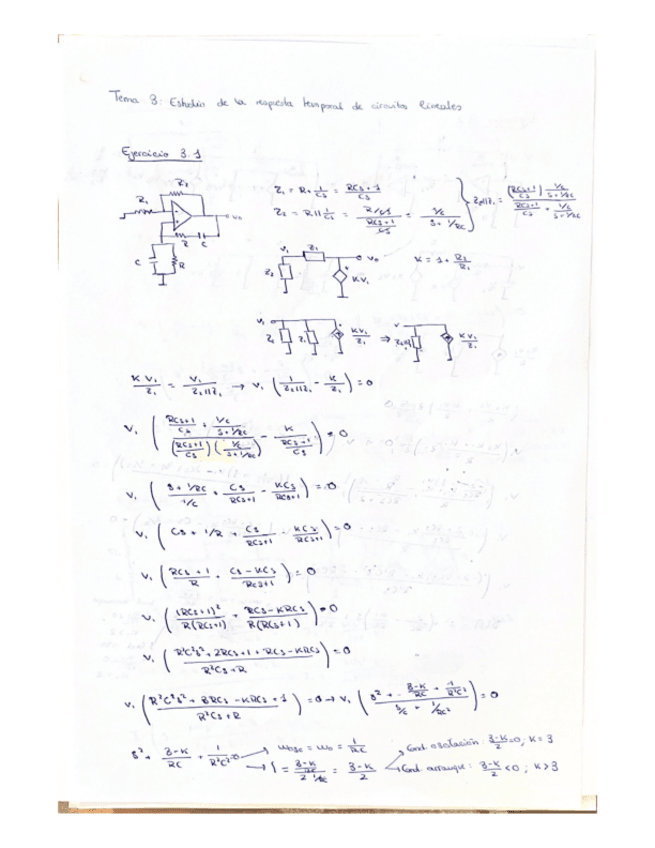 Tema 3: Estudio de la respuesta temporal de circuitos lineales
Ejercicio 3.1
R2
R1
Vo
R C
C R
Z1 = R + 1/Cs = (RCs+1)/Cs
Z2 = R || 1/Cs = (R/Cs)/((RCs+1)/Cs) = (1/C)/(s + 1/RC)
Z2||Z1 = (((RCs+1)/Cs) (1/C)/(s+1/RC))/((RCs+1)/Cs + (1/C)/(s+1/RC))
V1 Z1 Vo
Z2 KV1
K = 1 + R2/R1
V1 Z2 Z1 KV1/Z1 ⇒ V Z2||Z1 KV1/Z1
KV1/Z1 = V1/(Z2||Z1) → V1 (1/(Z2||Z1) - K/Z1) = 0
V1 (((RCs+1)/Cs + (1/C)/(s+1/RC))/(((RCs+1)/Cs)((1/C)/(s+1/RC))) - K/((RCs+1)/Cs)) = 0
V1 ((s + 1/RC)/(1/C) + Cs/(RCs+1) - KCs/(RCs+1)) = 0
V1 (Cs + 1/R + Cs/(RCs+1) - KCs/(RCs+1)) = 0
V1 ((RCs+1)/R + (Cs-KCs)/(RCs+1)) = 0
V1 ((RCs+1)²/(R(RCs+1)) + (RCs-KRCs)/(R(RCs+1))) = 0
V1 ((R²C²s² + 2RCs + 1 + RCs - KRCs)/(R²Cs+R)) = 0
V1 ((R²C²s² + 3RCs - KRCs + 1)/(R²Cs+R)) = 0 → V1 ((s² + (3-K)/RC + 1/R²C²)/(s/C + 1/RC²)) = 0
s² + (3-K)/RC + 1/R²C² = 0 → ωosc = ωo = 1/RC
→ ζ = ((3-K)/RC)/(2 1/RC) = (3-K)/2
Cond. oscilación: (3-K)/2 = 0; K = 3
Cond. arranque: (3-K)/2 < 0; K > 3